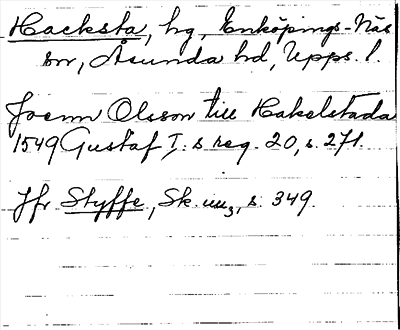 Hacksta, hg, Enköpings-Näs
sn, Åsunda hd, Upps. l.
Joenn Olsson till Hakelstada
1549 Gustaf I:s reg. 20, s. 271.
Jfr Styffe, Sk. un3, s. 349.